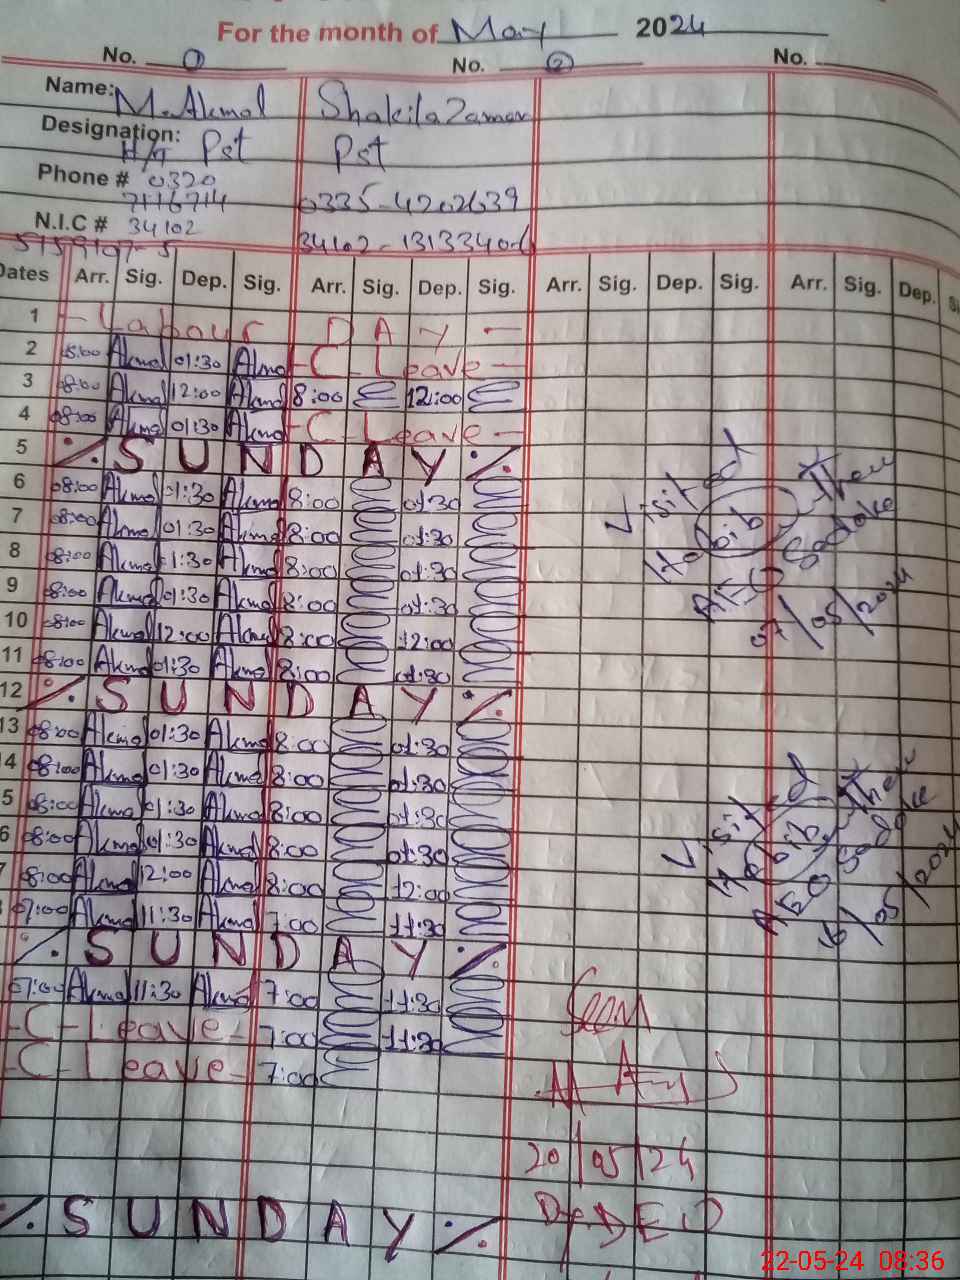 For the month of May 2024
No. 1 No. 2 No.
Name: M. Akmal Shakila Zaman
Designation: H/T Pst Pst
Phone # 0320
7116714 0335-4202639
N.I.C # 34102
5159107-5 34102-1313340-6
Dates Arr. Sig. Dep. Sig. Arr. Sig. Dep. Sig. Arr. Sig. Dep. Sig. Arr. Sig. Dep.
1 - Labour DAY -
2 08:00 Akmal 01:30 Akmal - C - Leave -
3 08:00 Akmal 12:00 Akmal 8:00 12:00
4 08:00 Akmal 01:30 Akmal - C - Leave -
5 % SUNDAY %
6 08:00 Akmal 01:30 Akmal 8:00 01:30
7 08:00 Akmal 01:30 Akmal 8:00 01:30
8 08:00 Akmal 1:30 Akmal 8:00 01:30
9 08:00 Akmal 01:30 Akmal 8:00 01:30
10 08:00 Akmal 12:00 Akmal 8:00 12:00
11 08:00 Akmal 01:30 Akmal 8:00 01:30
12 % SUNDAY %
13 08:00 Akmal 01:30 Akmal 8:00 01:30
4 08:00 Akmal 01:30 Akmal 8:00 01:30
5 08:00 Akmal 01:30 Akmal 8:00 01:30
6 08:00 Akmal 01:30 Akmal 8:00 01:30
7 8:00 Akmal 12:00 Akmal 8:00 12:00
07:00 Akmal 11:30 Akmal 7:00 11:30
% SUNDAY %
07:00 Akmal 11:30 Akmal 7:00 11:30
- C - Leave - 7:00 11:30
- C - Leave - 7:00
% SUNDAY %
Visited
Habib
AEO Sadoke
07/05/2024
Visited
Habib
AEO Sadoke
16/05/2024
Seen
20/05/24
Dy. DEO
22-05-24 08:36